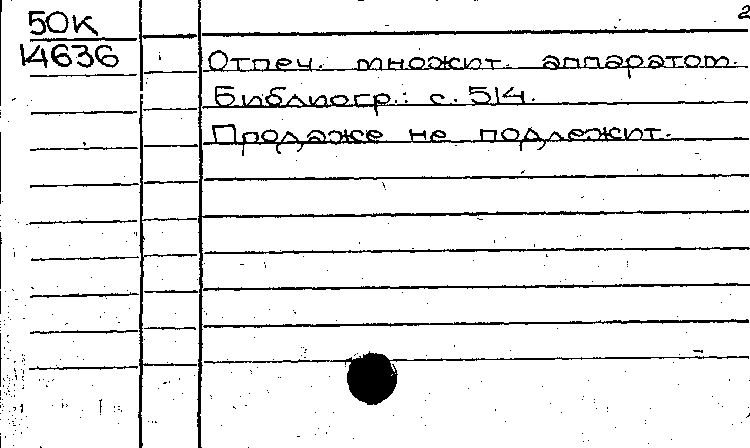 2
50К
14636
Отпеч. множит. аппаратом.
Библиогр.: с. 514.
Продаже не подлежит.